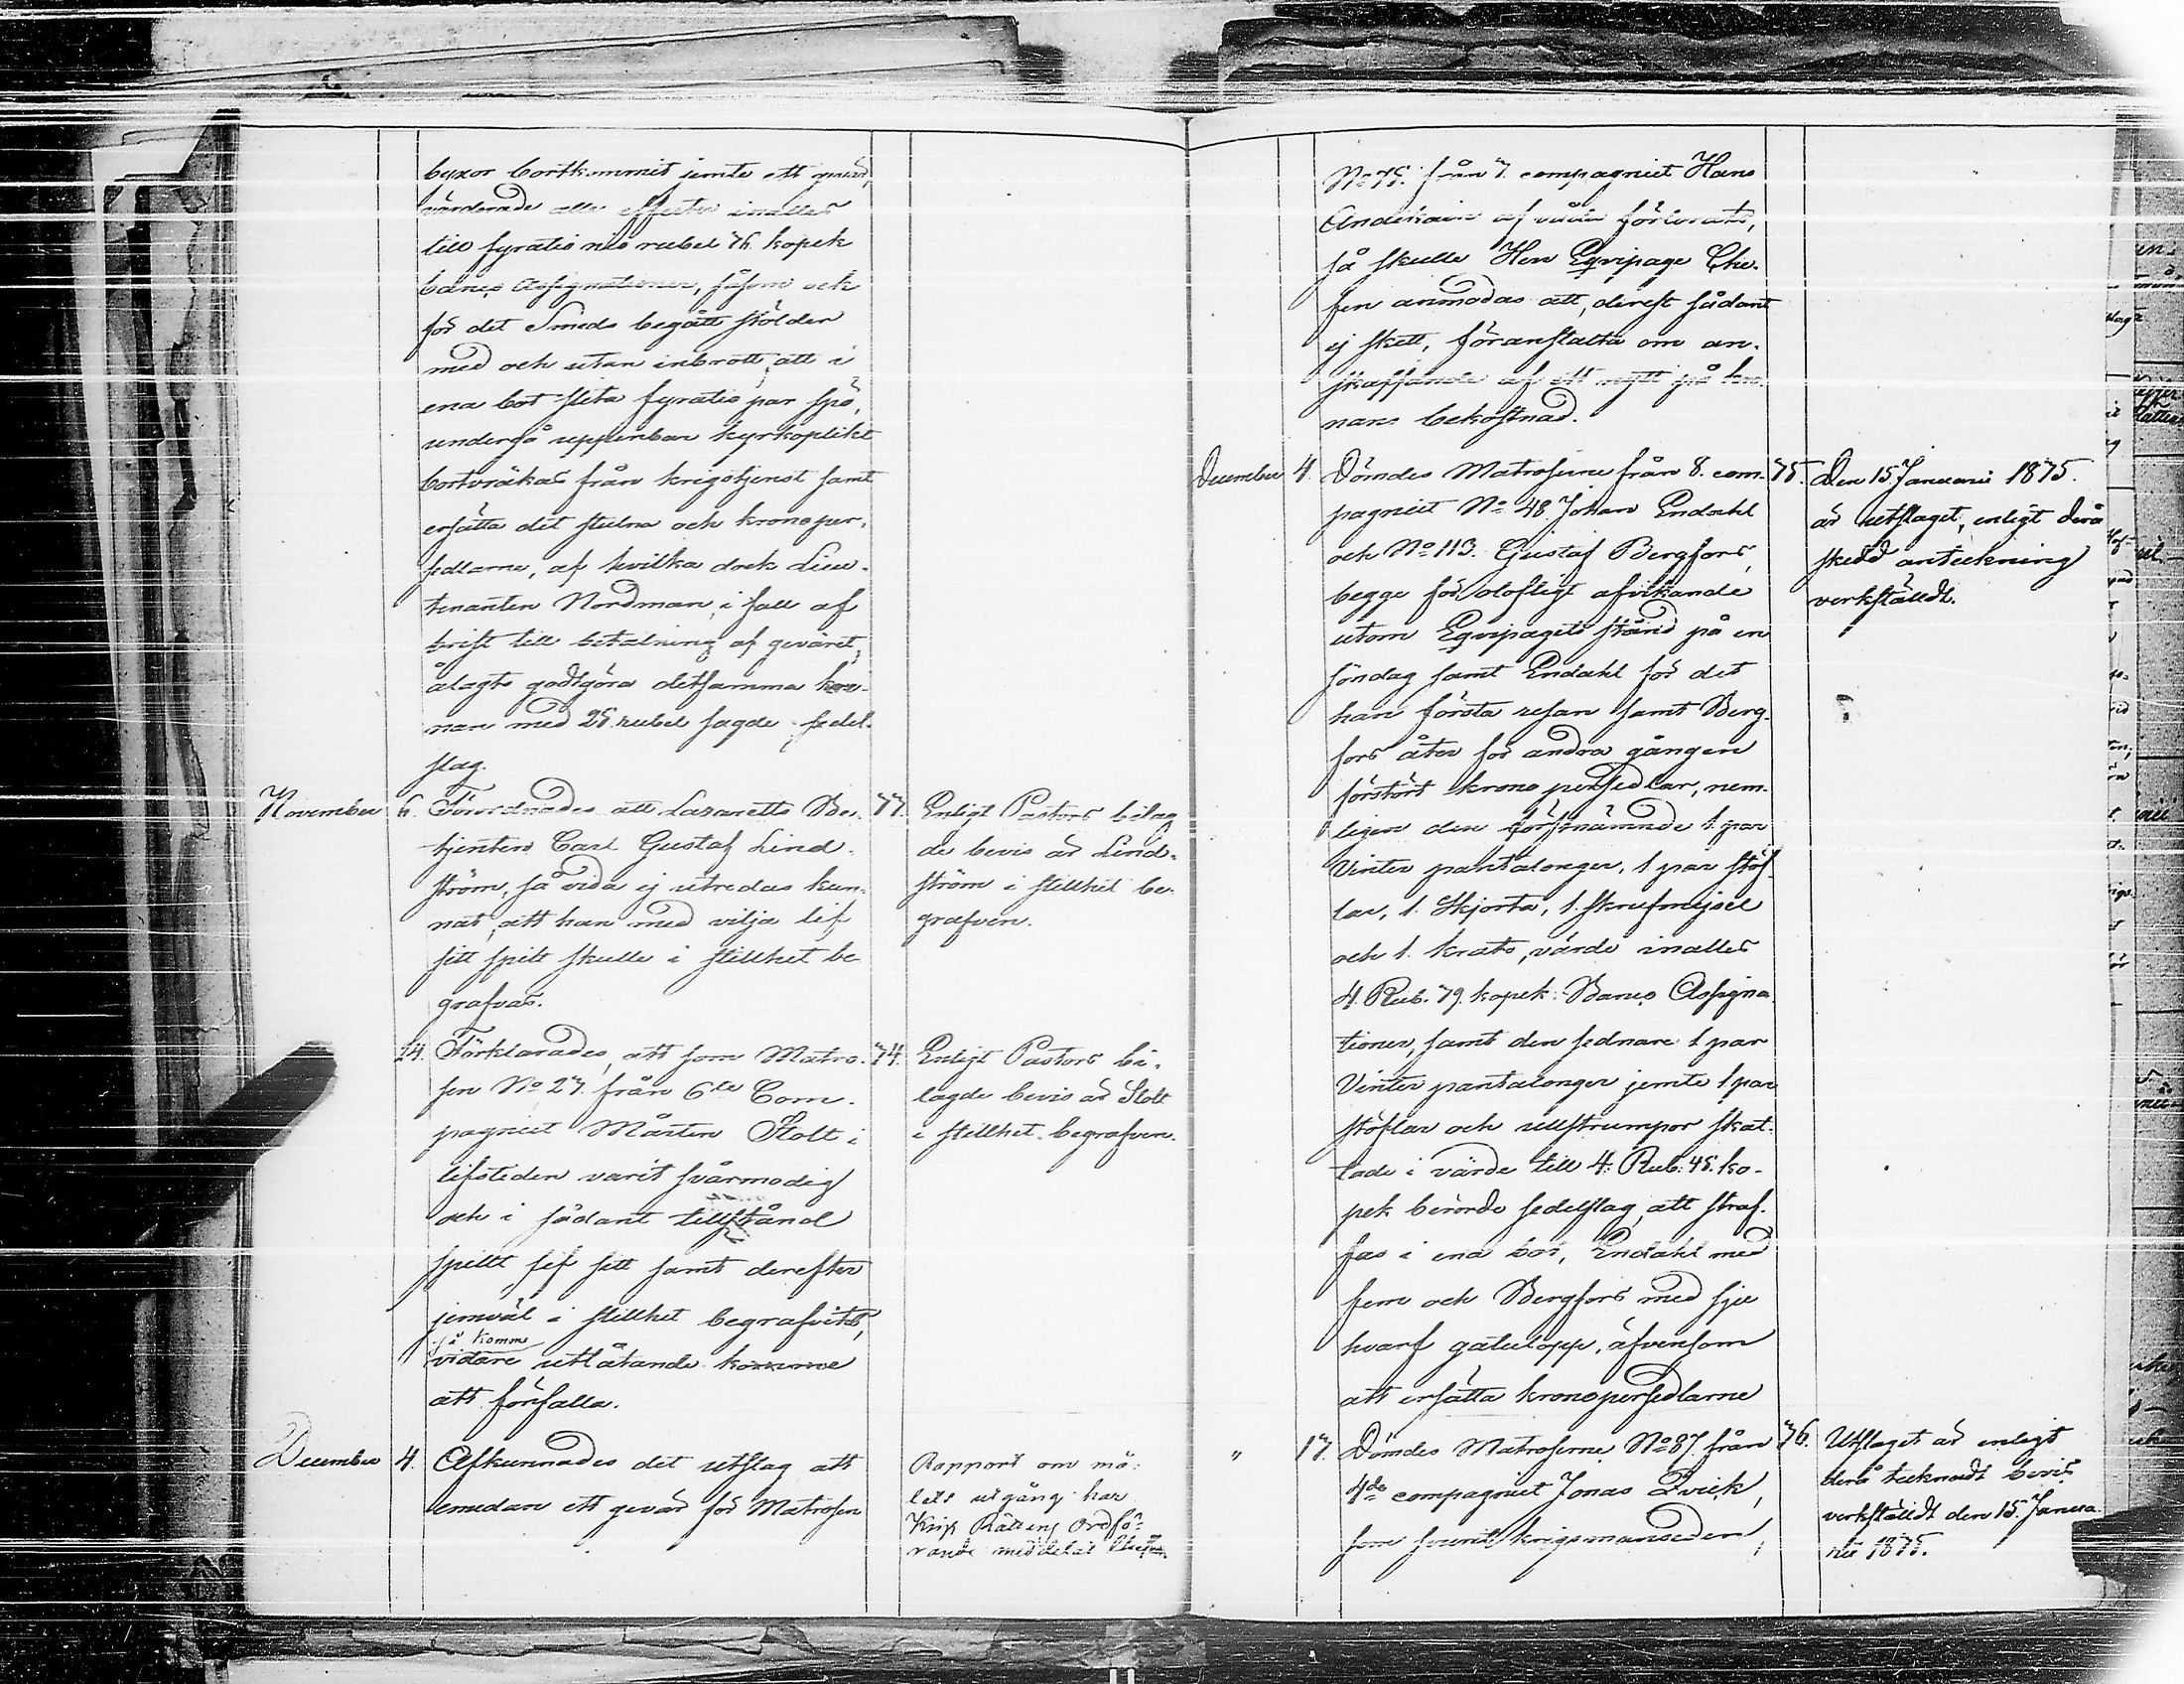 byxor bortkommit jemte ett gevär,
värderade alla effecter inalles
till fyratio nio rubel 76. kopek
banco Assignationer, såsom ock
för det Smeds begått stölder
med och utan inbrott, att i
ena bot slita fyratio par spö,
undergå uppenbar kyrkoplikt
bortvräkas från krigstjenst samt
ersätta det stulna och kronoper-
sedlarne, af hvilka dock Lieu-
tenanten Nordman, i fall af
brist till betalning af geväret,
ålagts godtgöra detsamma kro-
nan med 25. rubel sagde sedel-
slag.
November 6. Förordnades att Lazaretts Be- 77. Enligt Pastors bilag
tjenten Carl Gustaf Lind- de bevis är Lind-
ström, så vida ej utredas kun- ström i stillhet be-
nat, att han med vilja lif grafven.
sitt spilt skulle i stillhet be
grafvas.
14. Förklarades, att som Matro- 74. Enligt Pastors bi-
sen No 27. från 6te Com- lagde bevis är Stolt
pagniet Mårten Stolt i i stillhet begrafven.
lifstiden varit svårmodig
och i sådant tillstånd
spillt sif sitt samt derefter
jemväl i stillhet begrafvits,
så komme
vidare utlåtande komme
att förfalla.
December 4. Afkunnades det utslag att Rapport om må-
emedan ett gevär för Matrosen lets utgång har
Krigs Rättens Ordfö-
rande meddelat
No 75. från 7. compagniet Hans
af våda förlorats,
så skulle Herr Eqvipage Che-
fen anmodas att, derest sådant
ej skett, föranstalta om an-
skaffande af ett nytt på kro-
nans bekostnad.
December 4. Dömdes Matroserne från 8. com- 75. Den 15 Januari 1875.
pagniet No 48 Johan Endahl är utslaget, enligt derå
och No 113. Gustaf Bergfors, skedd anteckning
begge för olofligt afvikande verkställdt.
utom Eqvipagets stånd på en
söndag samt Endahl för det
han första resan samt Berg-
fors åter för andra gången
förstört krono persedlar, nem-
ligen den förstnämnde 1. par
Vinter pantalonger, 1 par stöf-
lar, 1. Skjorta, 1. skrufmejsel
och 1. krats, värde inalles
4. Rub. 79. kopek: Banco Assigna
tioner, samt den sednare 1 par
Vinter pantalonger jemte 1 par
stöflar och ullstrumpor skat-
tade i värde till 4: Rub: 45. ko-
pek berörde sedelslag, att straf-
fas i ena bot, Endahl med
fem och Bergfors med sju
hvarf gatulopp, äfvensom
att ersätta kronopersedlarne
" 17. Dömdes Matroserne No 87. från 76. Utslaget är enligt
4de compagniet Jonas Qvick, derå tecknadt bevis
som svurit krigsmanseden, verkställdt den 15. Janua-
rii 1875.